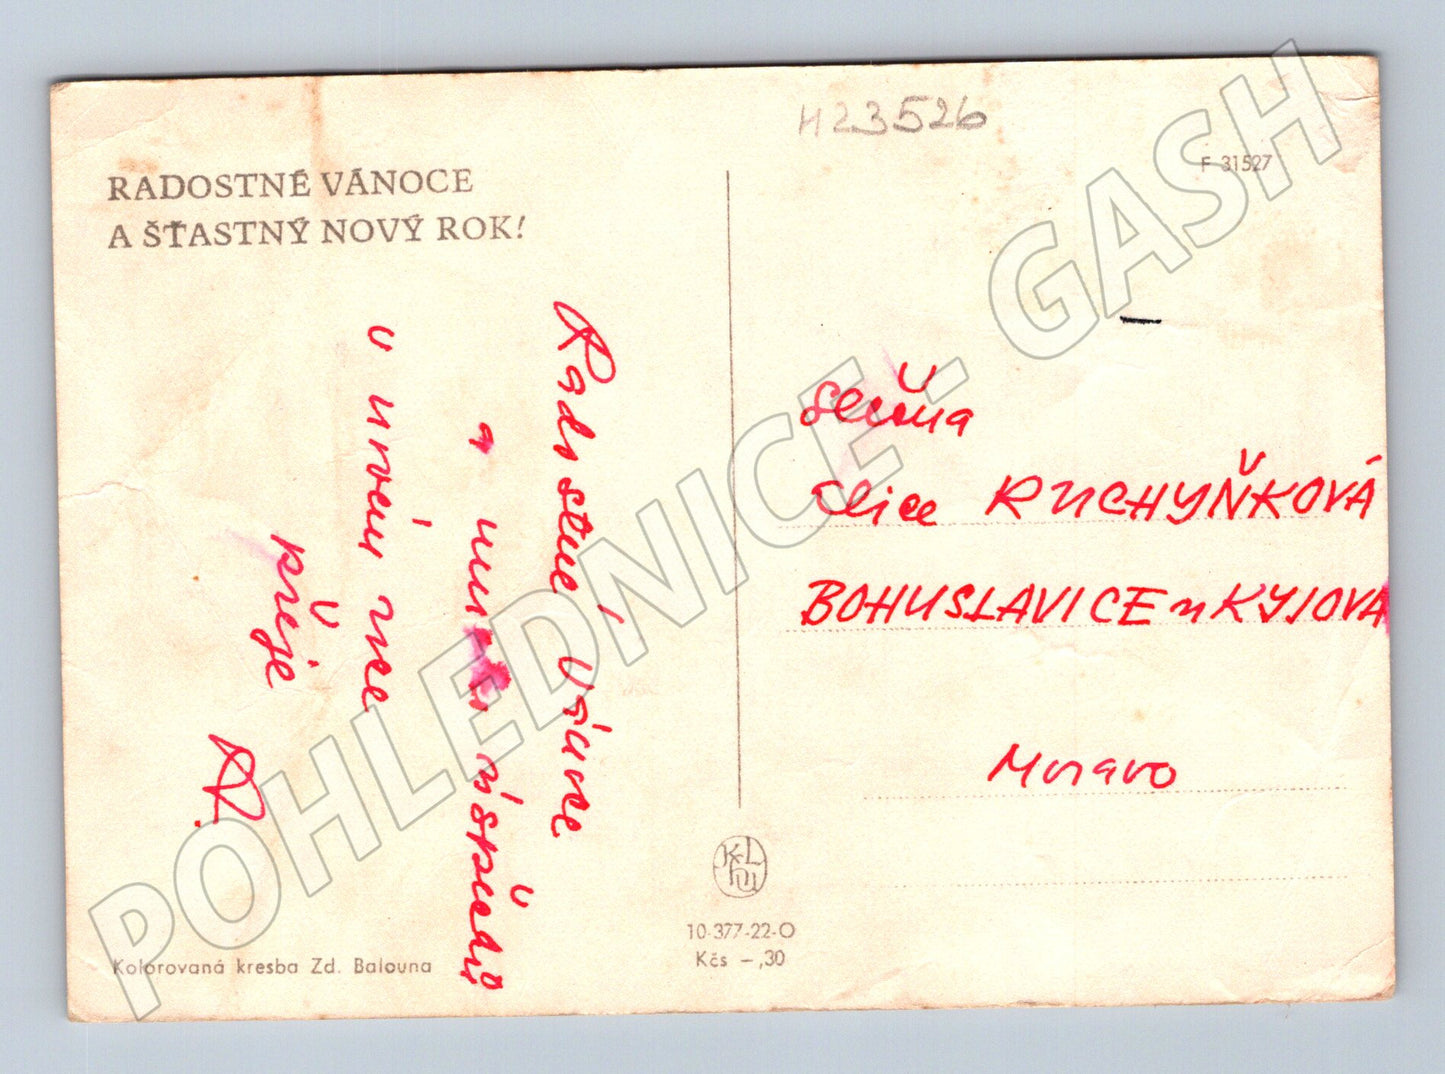 H23526
F 31527
RADOSTNÉ VÁNOCE
A ŠŤASTNÝ NOVÝ ROK!
Radostné Vánoce
a úspěchů
v novém roce
přeje
R.
slečna
Alice RUCHYŇKOVÁ
BOHUSLAVICE u KYJOVA
Morava
KLHU
10-377-22-O
Kčs -,30
Kolorovaná kresba Zd. Balouna
POHLEDNICE - GASH